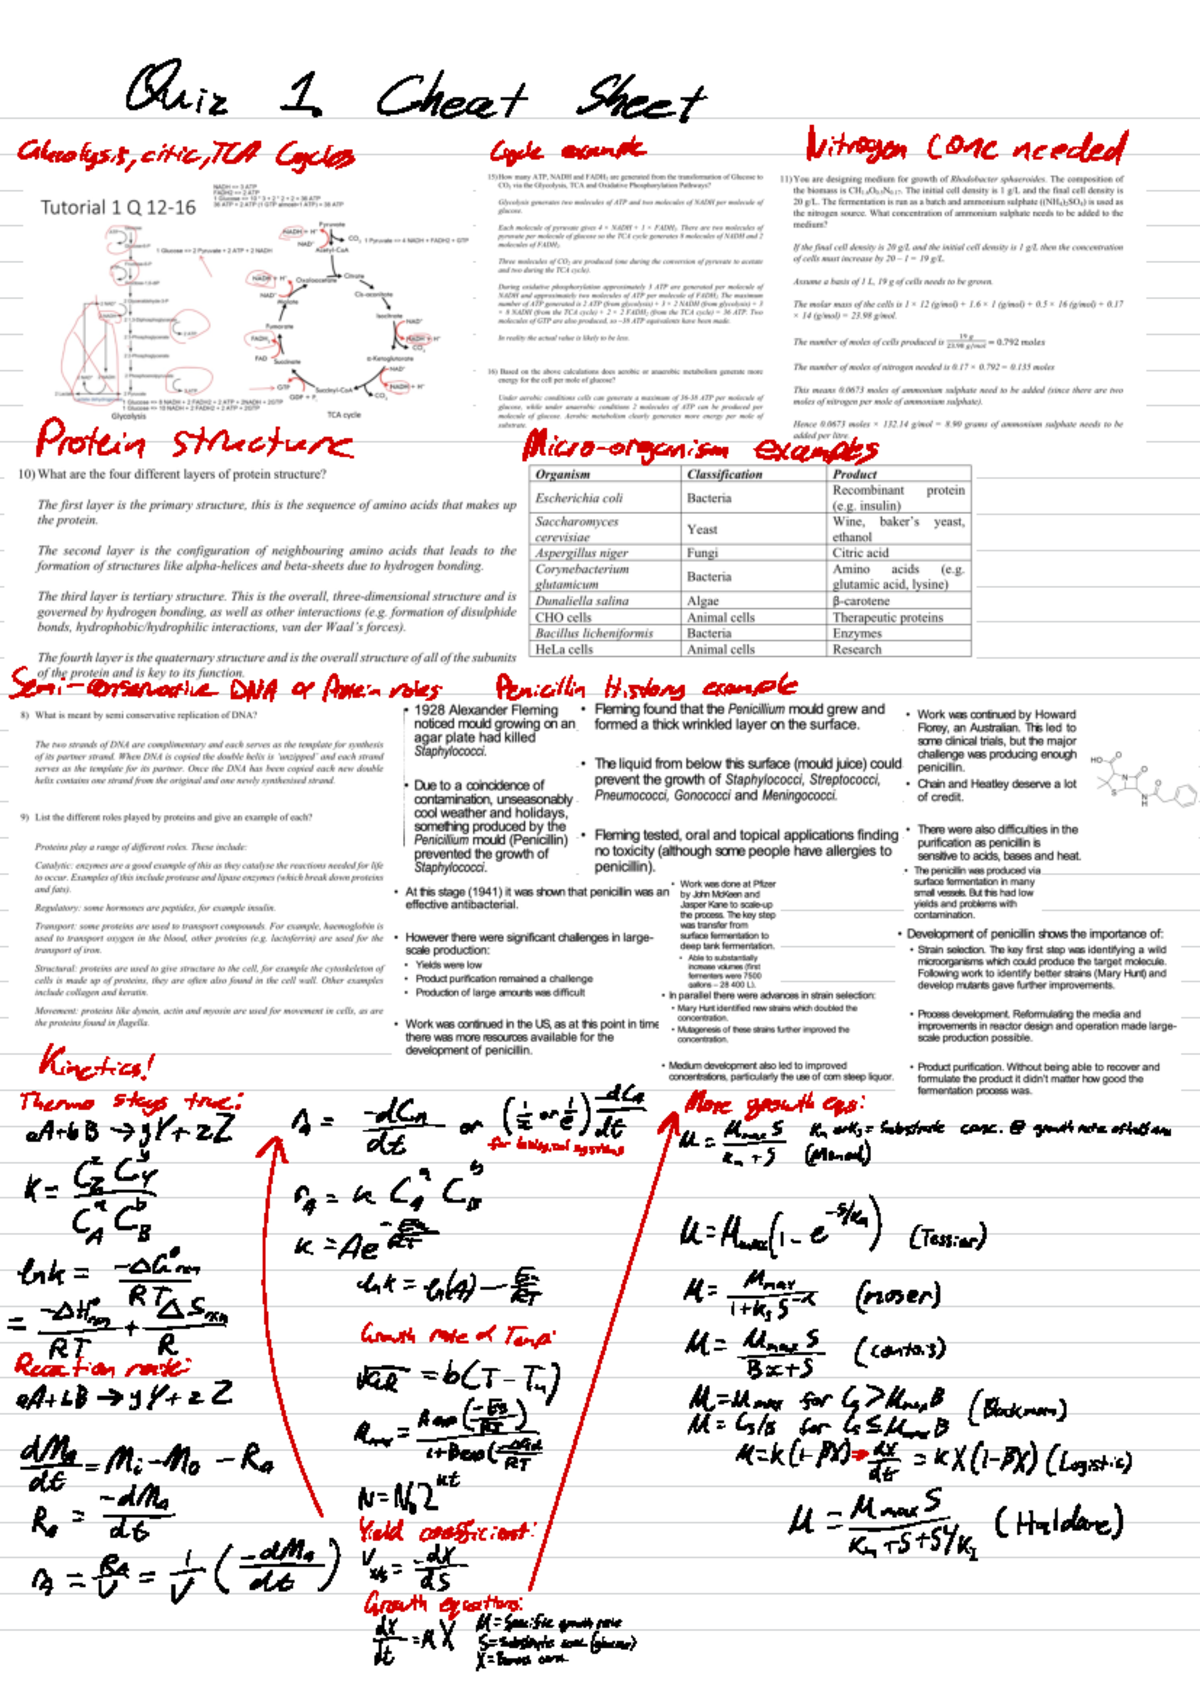 Quiz 1 Cheat Sheet
Glycolysis, citric, TCA Cycles
Tutorial 1 Q 12-16
NADH => 3 ATP
FADH2 => 2 ATP
1 Glucose => 2 Pyruvate + 2 ATP + 2 NADH
1 Pyruvate => 4 NADH + FADH2 + GTP
Pyruvate
NADH + H⁺
NAD⁺
CO₂
Acetyl-CoA
Oxaloacetate
Citrate
Cis-aconitate
Isocitrate
NAD⁺
NADH + H⁺
CO₂
α-Ketoglutarate
NAD⁺
NADH + H⁺
CO₂
Succinyl-CoA
GTP
GDP + Pᵢ
Succinate
FAD
FADH₂
Fumarate
Malate
NAD⁺
NADH + H⁺
Glycolysis
TCA cycle
Cycle example
15) How many ATP, NADH and FADH₂ are generated from the transformation of Glucose to
CO₂ via the Glycolysis, TCA and Oxidative Phosphorylation Pathways?
Glycolysis generates two molecules of ATP and two molecules of NADH per molecule of
glucose.
Each molecule of pyruvate gives 4 × NADH + 1 × FADH₂. There are two molecules of
pyruvate per molecule of glucose so the TCA cycle generates 8 molecules of NADH and 2
molecules of FADH₂.
Three molecules of CO₂ are produced (one during the conversion of pyruvate to acetate
and two during the TCA cycle).
During oxidative phosphorylation approximately 3 ATP are generated per molecule of
NADH and approximately two molecules of ATP per molecule of FADH₂. The maximum
number of ATP generated is 2 ATP (from glycolysis) + 3 × 2 NADH (from glycolysis) + 3
× 8 NADH (from the TCA cycle) + 2 × 2 FADH₂ (from the TCA cycle) = 36 ATP. Two
molecules of GTP are also produced, so ~38 ATP equivalents have been made.
In reality the actual value is likely to be less.
16) Based on the above calculations does aerobic or anaerobic metabolism generate more
energy for the cell per mole of glucose?
Under aerobic conditions cells can generate a maximum of 36-38 ATP per molecule of
glucose, while under anaerobic conditions 2 molecules of ATP can be produced per
molecule of glucose. Aerobic metabolism clearly generates more energy per mole of
substrate.
Nitrogen conc needed
11) You are designing medium for growth of Rhodobacter sphaeroides. The composition of
the biomass is CH₁.₆O₀.₅N₀.₁₇. The initial cell density is 1 g/L and the final cell density is
20 g/L. The fermentation is run as a batch and ammonium sulphate ((NH₄)₂SO₄) is used as
the nitrogen source. What concentration of ammonium sulphate needs to be added to the
medium?
If the final cell density is 20 g/L and the initial cell density is 1 g/L, then the concentration
of cells must increase by 20 – 1 = 19 g/L.
Assume a basis of 1 L, 19 g of cells needs to be grown.
The molar mass of the cells is 1 × 12 (g/mol) + 1.6 × 1 (g/mol) + 0.5 × 16 (g/mol) + 0.17
× 14 (g/mol) = 23.98 g/mol.
The number of moles of cells produced is 19 g / 23.98 g/mol = 0.792 moles
The number of moles of nitrogen needed is 0.17 × 0.792 = 0.135 moles
This means 0.0673 moles of ammonium sulphate need to be added (since there are two
moles of nitrogen per mole of ammonium sulphate).
Hence 0.0673 moles × 132.14 g/mol = 8.90 grams of ammonium sulphate needs to be
added per litre.
Protein structure
10) What are the four different layers of protein structure?
The first layer is the primary structure, this is the sequence of amino acids that makes up
the protein.
The second layer is the configuration of neighbouring amino acids that leads to the
formation of structures like alpha-helices and beta-sheets due to hydrogen bonding.
The third layer is tertiary structure. This is the overall, three-dimensional structure and is
governed by hydrogen bonding, as well as other interactions (e.g. formation of disulphide
bonds, hydrophobic/hydrophilic interactions, van der Waal's forces).
The fourth layer is the quaternary structure and is the overall structure of all of the subunits
of the protein and is key to its function.
Micro-organism examples
Organism Classification Product
Escherichia coli Bacteria Recombinant protein (e.g. insulin)
Saccharomyces cerevisiae Yeast Wine, baker's yeast, ethanol
Aspergillus niger Fungi Citric acid
Corynebacterium glutamicum Bacteria Amino acids (e.g. glutamic acid, lysine)
Dunaliella salina Algae β-carotene
CHO cells Animal cells Therapeutic proteins
Bacillus licheniformis Bacteria Enzymes
HeLa cells Animal cells Research
Semi-conservative DNA & Protein roles
8) What is meant by semi conservative replication of DNA?
The two strands of DNA are complimentary and each serves as the template for synthesis
of its partner strand. When DNA is copied the double helix is 'unzipped' and each strand
serves as the template for its partner. Once the DNA has been copied each new double
helix contains one strand from the original and one newly synthesised strand.
9) List the different roles played by proteins and give an example of each?
Proteins play a range of different roles. These include:
Catalytic: enzymes are a good example of this as they catalyse the reactions needed for life
to occur. Examples of this include protease and lipase enzymes (which break down proteins
and fats).
Regulatory: some hormones are peptides, for example insulin.
Transport: some proteins are used to transport compounds. For example, haemoglobin is
used to transport oxygen in the blood, other proteins (e.g. lactoferrin) are used for the
transport of iron.
Structural: proteins are used to give structure to the cell, for example the cytoskeleton of
cells is made up of proteins, they are often also found in the cell wall. Other examples
include collagen and keratin.
Movement: proteins like dynein, actin and myosin are used for movement in cells, as are
the proteins found in flagella.
Penicillin History example
• 1928 Alexander Fleming
noticed mould growing on an
agar plate had killed
Staphylococci.
• Due to a coincidence of
contamination, unseasonably
cool weather and holidays,
something produced by the
Penicillium mould (Penicillin)
prevented the growth of
Staphylococci.
• Fleming found that the Penicillium mould grew and
formed a thick wrinkled layer on the surface.
• The liquid from below this surface (mould juice) could
prevent the growth of Staphylococci, Streptococci,
Pneumococci, Gonococci and Meningococci.
• Fleming tested, oral and topical applications finding
no toxicity (although some people have allergies to
penicillin).
• Work was continued by Howard
Florey, an Australian. This led to
some clinical trials, but the major
challenge was producing enough
penicillin.
• Chain and Heatley deserve a lot
of credit.
• There were also difficulties in the
purification as penicillin is
sensitive to acids, bases and heat.
• The penicillin was produced via
surface fermentation in many
small vessels. But this had low
yields and problems with
contamination.
HO
O
N
O
S
N
H
O
• At this stage (1941) it was shown that penicillin was an
effective antibacterial.
• However there were significant challenges in large-
scale production:
• Yields were low
• Product purification remained a challenge
• Production of large amounts was difficult
• Work was continued in the US, as at this point in time
there was more resources available for the
development of penicillin.
• Work was done at Pfizer
by John McKeen and
Jasper Kane to scale-up
the process. The key step
was transfer from
surface fermentation to
deep tank fermentation.
• Able to substantially
increase volumes (first
fermenters were 7500
gallons – 28 400 L).
• In parallel there were advances in strain selection:
• Mary Hunt identified new strains which doubled the
concentration.
• Mutagenesis of these strains further improved the
concentration.
• Medium development also led to improved
concentrations, particularly the use of corn steep liquor.
• Development of penicillin shows the importance of:
• Strain selection. The key first step was identifying a wild
microorganisms which could produce the target molecule.
Following work to identify better strains (Mary Hunt) and
develop mutants gave further improvements.
• Process development. Reformulating the media and
improvements in reactor design and operation made large-
scale production possible.
• Product purification. Without being able to recover and
formulate the product it didn't matter how good the
fermentation process was.
Kinetics!
Thermo stays true:
aA+bB → yY+zZ
K = C_Z^z C_Y^y / C_A^a C_B^b
ln k = -ΔG°rxn / RT
= -ΔH°rxn / RT + ΔS°rxn / R
Reaction rate:
aA+bB → yY+zZ
dM_a/dt = M_i - M_o - R_a
R_a = -dM_a/dt
r_A = R_A/V = 1/V (-dM_a/dt)
r_A = -dC_A/dt or (1/x or 1/e) -dC_A/dt
for biological systems
r_A = k C_A^a C_B^b
k = Ae^(-E/RT)
ln k = ln(A) - E/RT
Growth rate & Temp:
= b(T - T_m)
N = N₀2^kt
Yield coefficient:
Y_xs = -dX/dS
Growth equations:
dX/dt = μX
μ = Specific growth rate
S = Substrate conc (glucose)
X = Biomass conc
More growth eqs:
μ = μmax S / K_m + S (Monod)
μ = μmax (1 - e^(-S/K_s)) (Tessier)
μ = μmax / 1+K_s S^-λ (moser)
μ = μmax S / Bx+S (contois)
μ = μmax for C_s > μmax B
μ = C_s/B for C_s ≤ μmax B (Blackman)
μ = k(1-βX) → dX/dt = kX(1-βX) (Logistic)
μ = μmax S / K_m + S + S²/K_I (Haldane)